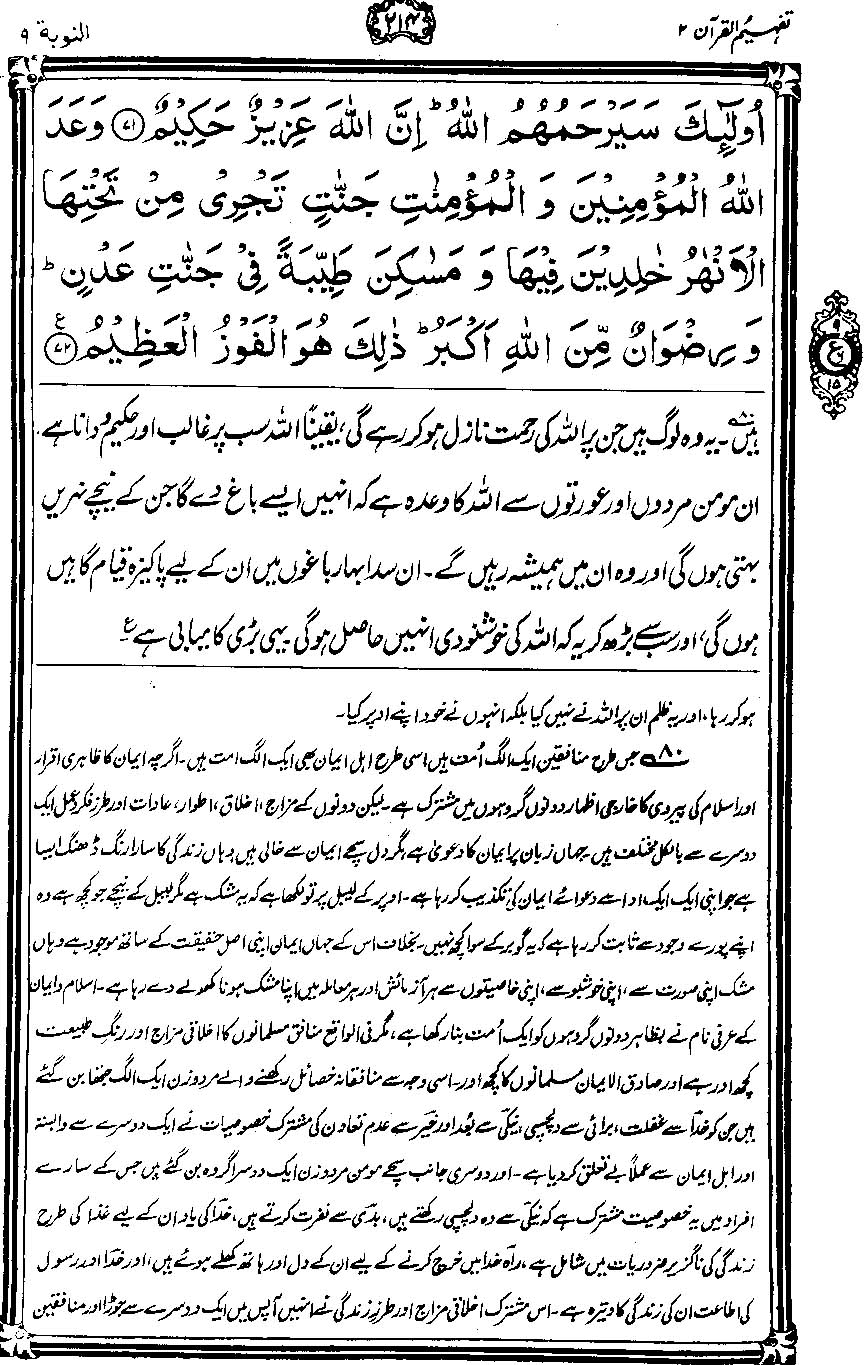 تفہیم القرآن ۲
۲۱۴
التوبۃ ۹
اُولٰٓئِكَ سَيَرْحَمُهُمُ اللّٰهُ ؕ اِنَّ اللّٰهَ عَزِيْزٌ حَكِيْمٌ ﴿۷۱﴾ وَعَدَ
اللّٰهُ الْمُؤْمِنِيْنَ وَ الْمُؤْمِنٰتِ جَنّٰتٍ تَجْرِيْ مِنْ تَحْتِهَا
الْاَنْهٰرُ خٰلِدِيْنَ فِيْهَا وَ مَسٰكِنَ طَيِّبَةً فِيْ جَنّٰتِ عَدْنٍ ؕ
وَ رِضْوَانٌ مِّنَ اللّٰهِ اَكْبَرُ ؕ ذٰلِكَ هُوَ الْفَوْزُ الْعَظِيْمُ ﴿۷۲﴾ ع
۹
ع
۱۵
ہیں۸۰۔ یہ وہ لوگ ہیں جن پر اللہ کی رحمت نازل ہو کر رہے گی، یقیناً اللہ سب پر غالب اور حکیم و دانا ہے۔
ان مومن مردوں اور عورتوں سے اللہ کا وعدہ ہے کہ انہیں ایسے باغ دے گا جن کے نیچے نہریں
بہتی ہوں گی اور وہ ان میں ہمیشہ رہیں گے۔ ان سدا بہار باغوں میں ان کے لیے پاکیزہ قیام گاہیں
ہوں گی، اور سب سے بڑھ کر یہ کہ اللہ کی خوشنودی انہیں حاصل ہوگی یہی بڑی کامیابی ہے ع
ہو کر رہا، اور یہ ظلم ان پر اللہ نے نہیں کیا بلکہ انہوں نے خود اپنے اوپر کیا۔
۸۰ جس طرح منافقین ایک الگ اُمت ہیں اسی طرح اہل ایمان بھی ایک الگ امت ہیں۔ اگرچہ ایمان کا ظاہری اقرار
اور اسلام کی پیروی کا خارجی اظہار دونوں گروہوں میں مشترک ہے۔ لیکن دونوں کے مزاج، اخلاق، اطوار، عادات اور طرزِ فکر و عمل ایک
دوسرے سے بالکل مختلف ہیں۔ جہاں زبان پر ایمان کا دعویٰ ہے مگر دل سچے ایمان سے خالی ہیں وہاں زندگی کا سارا رنگ ڈھنگ ایسا
ہے جو اپنی ایک ایک ادا سے دعوائے ایمان کی تکذیب کر رہا ہے۔ اوپر کے لیبل پر تو لکھا ہے کہ یہ مشک ہے مگر لیبل کے نیچے جو کچھ ہے وہ
اپنے پورے وجود سے ثابت کر رہا ہے کہ یہ گوبر کے سوا کچھ نہیں۔ بخلاف اس کے جہاں ایمان اپنی اصل حقیقت کے ساتھ موجود ہے وہاں
مشک اپنی صورت سے، اپنی خوشبو سے، اپنی خاصیتوں سے ہر آزمائش اور ہر معاملہ میں اپنا مشک ہونا کھولے دے رہا ہے۔ اسلام و ایمان
کے عرفی نام نے بظاہر دونوں گروہوں کو ایک اُمت بنا رکھا ہے، مگر فی الواقع منافق مسلمانوں کا اخلاقی مزاج اور رنگِ طبیعت
کچھ اور ہے اور صادق الایمان مسلمانوں کا کچھ اور۔ اسی وجہ سے منافقانہ خصائل رکھنے والے مرد و زن ایک الگ جتھا بن گئے
ہیں جن کو خدا سے غفلت، برائی سے دلچسپی، نیکی سے بُعد اور خیر سے عدم تعاون کی مشترک خصوصیات نے ایک دوسرے سے وابستہ
اور اہل ایمان سے عملاً بے تعلق کر دیا ہے۔ اور دوسری جانب سچے مومن مرد و زن ایک دوسرا گروہ بن گئے ہیں جس کے سارے
افراد میں یہ خصوصیت مشترک ہے کہ نیکی سے وہ دلچسپی رکھتے ہیں، بدی سے نفرت کرتے ہیں، خدا کی یاد ان کے لیے غذا کی طرح
زندگی کی ناگزیر ضروریات میں شامل ہے، راہِ خدا میں خرچ کرنے کے لیے ان کے دل اور ہاتھ کھلے ہوئے ہیں، اور خدا اور رسول
کی اطاعت ان کی زندگی کا وتیرہ ہے۔ اس مشترک اخلاقی مزاج اور طرزِ زندگی نے انہیں آپس میں ایک دوسرے سے جوڑا اور منافقین